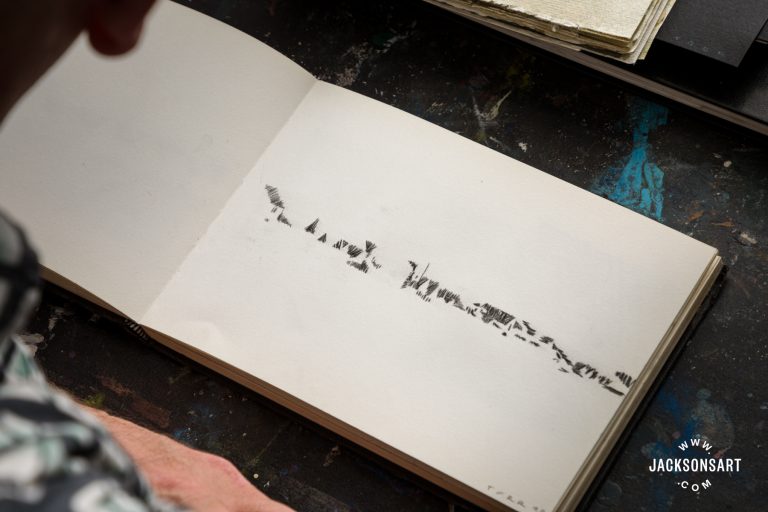 WWW.
JACKSONSART
.COM